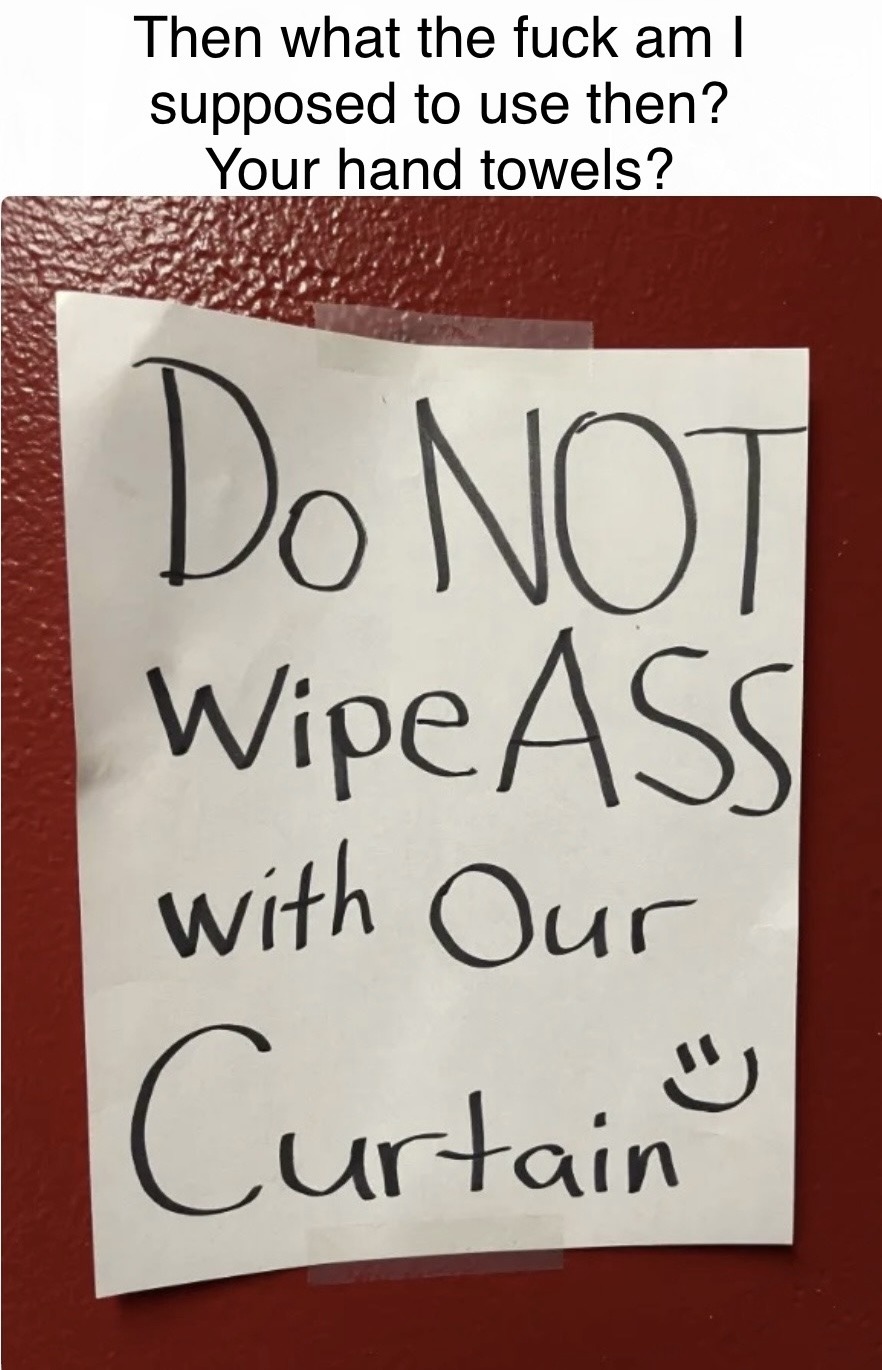 Then what the fuck am I
supposed to use then?
Your hand towels?
Do NOT
Wipe ASS
with Our
Curtain